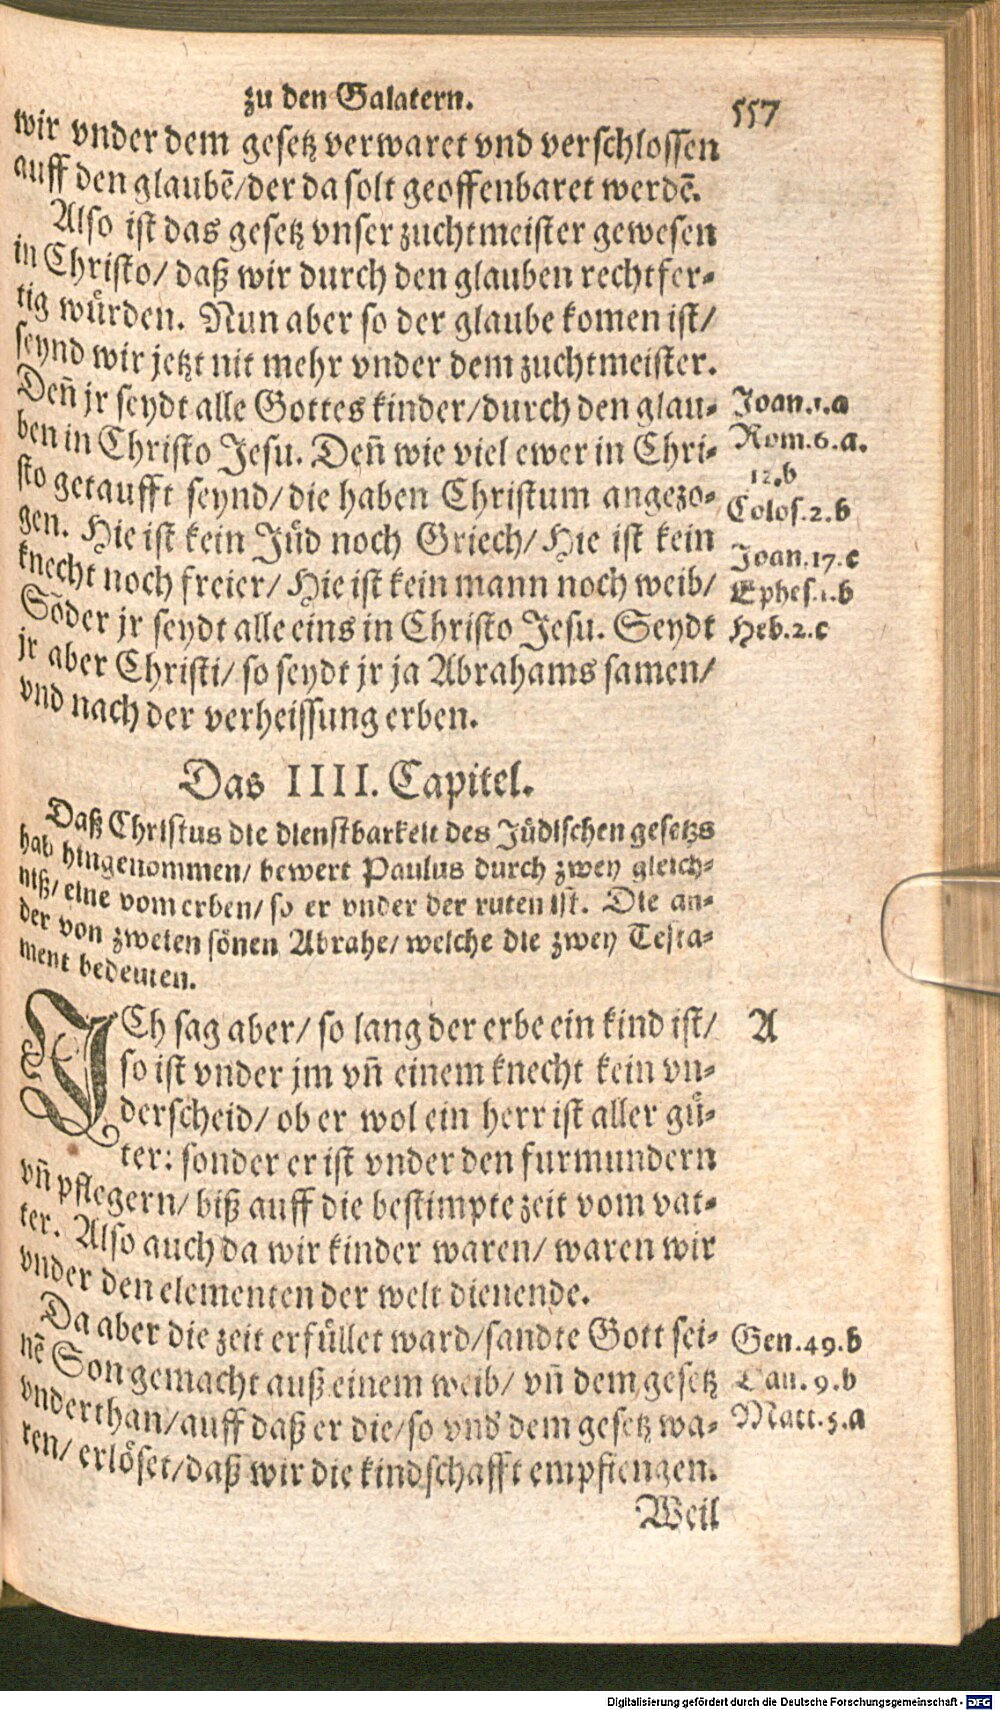 zu den Galatern.
557
wir vnder dem gesetz verwaret vnd verschlossen
auff den glaubẽ/der da solt geoffenbaret werdẽ.
Also ist das gesetz vnser zuchtmeister gewesen
in Christo/ daß wir durch den glauben rechtfer-
tig wuͤrden. Nun aber so der glaube komen ist/
seynd wir jetzt nit mehr vnder dem zuchtmeister.
Deñ jr seydt alle Gottes kinder/durch den glau-
ben in Christo Jesu. Deñ wie viel ewer in Chri-
sto getaufft seynd/ die haben Christum angezo-
gen. Hie ist kein Juͤd noch Griech/ Hie ist kein
knecht noch freier/ Hie ist kein mann noch weib/
Sõder jr seydt alle eins in Christo Jesu. Seydt
jr aber Christi/ so seydt jr ja Abrahams samen/
vnd nach der verheissung erben.
Joan.1.a
Rom.6.a.
12.b
Colos.2.b
Joan.17.c
Ephes.1.b
Heb.2.c
Das IIII. Capitel.
Daß Christus die dienstbarkeit des Juͤdischen gesetzs
hab hingenommen/ bewert Paulus durch zwey gleich-
niß/ eine vom erben/ so er vnder der ruten ist. Die an-
der von zweien soͤnen Abrahe/ welche die zwey Testa-
ment bedeuten.
ICh sag aber/ so lang der erbe ein kind ist/
so ist vnder jm vñ einem knecht kein vn-
derscheid/ ob er wol ein herr ist aller guͤ-
ter: sonder er ist vnder den furmundern
vñ pflegern/ biß auff die bestimpte zeit vom vat-
ter. Also auch da wir kinder waren/ waren wir
vnder den elementen der welt dienende.
Da aber die zeit erfuͤllet ward/sandte Gott sei-
nẽ Son gemacht auß einem weib/ vñ dem gesetz
vnderthan/auff daß er die/so vnd' dem gesetz wa-
ren/ erloͤset/daß wir die kindschafft empfiengen.
A
Gen.49.b
Dan.9.b
Matt.5.a
Weil
Digitalisierung gefördert durch die Deutsche Forschungsgemeinschaft - DFG